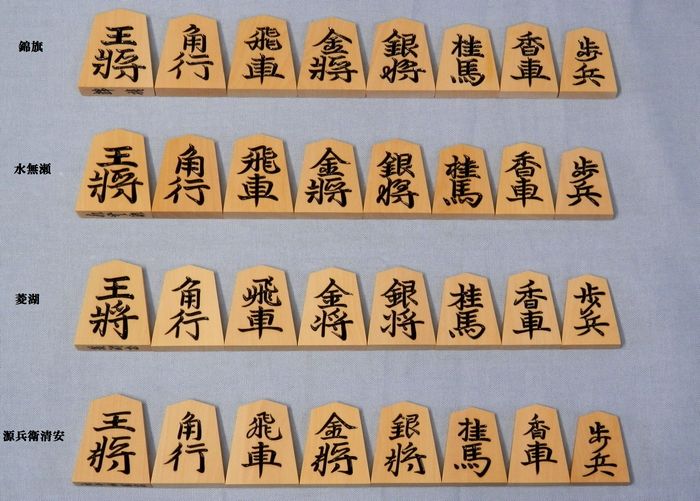 錦旗
王將 角行 飛車 金將 銀將 桂馬 香車 歩兵
水無瀬
王將 角行 飛車 金將 銀將 桂馬 香車 歩兵
菱湖
王将 角行 飛車 金将 銀将 桂馬 香車 歩兵
源兵衛清安
王将 角行 飛車 金将 銀将 桂馬 香車 歩兵